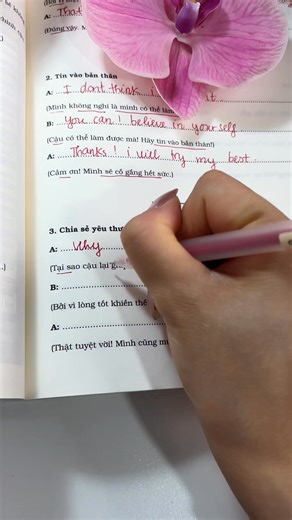 A: That
(Đúng vậy.
2. Tin vào bản thân
A: I dont think I
(Mình không nghĩ là mình có thể làm
B: You can! believe in yourself
(Cậu có thể làm được mà! Hãy tin vào bản thân!)
A: Thanks! I will try my best
(Cảm ơn! Mình sẽ cố gắng hết sức.)
3. Chia sẻ yêu thư
A: Why
(Tại sao cậu lại
B:
(Bởi vì lòng tốt khiến thế
A:
(Thật tuyệt vời! Mình cũng